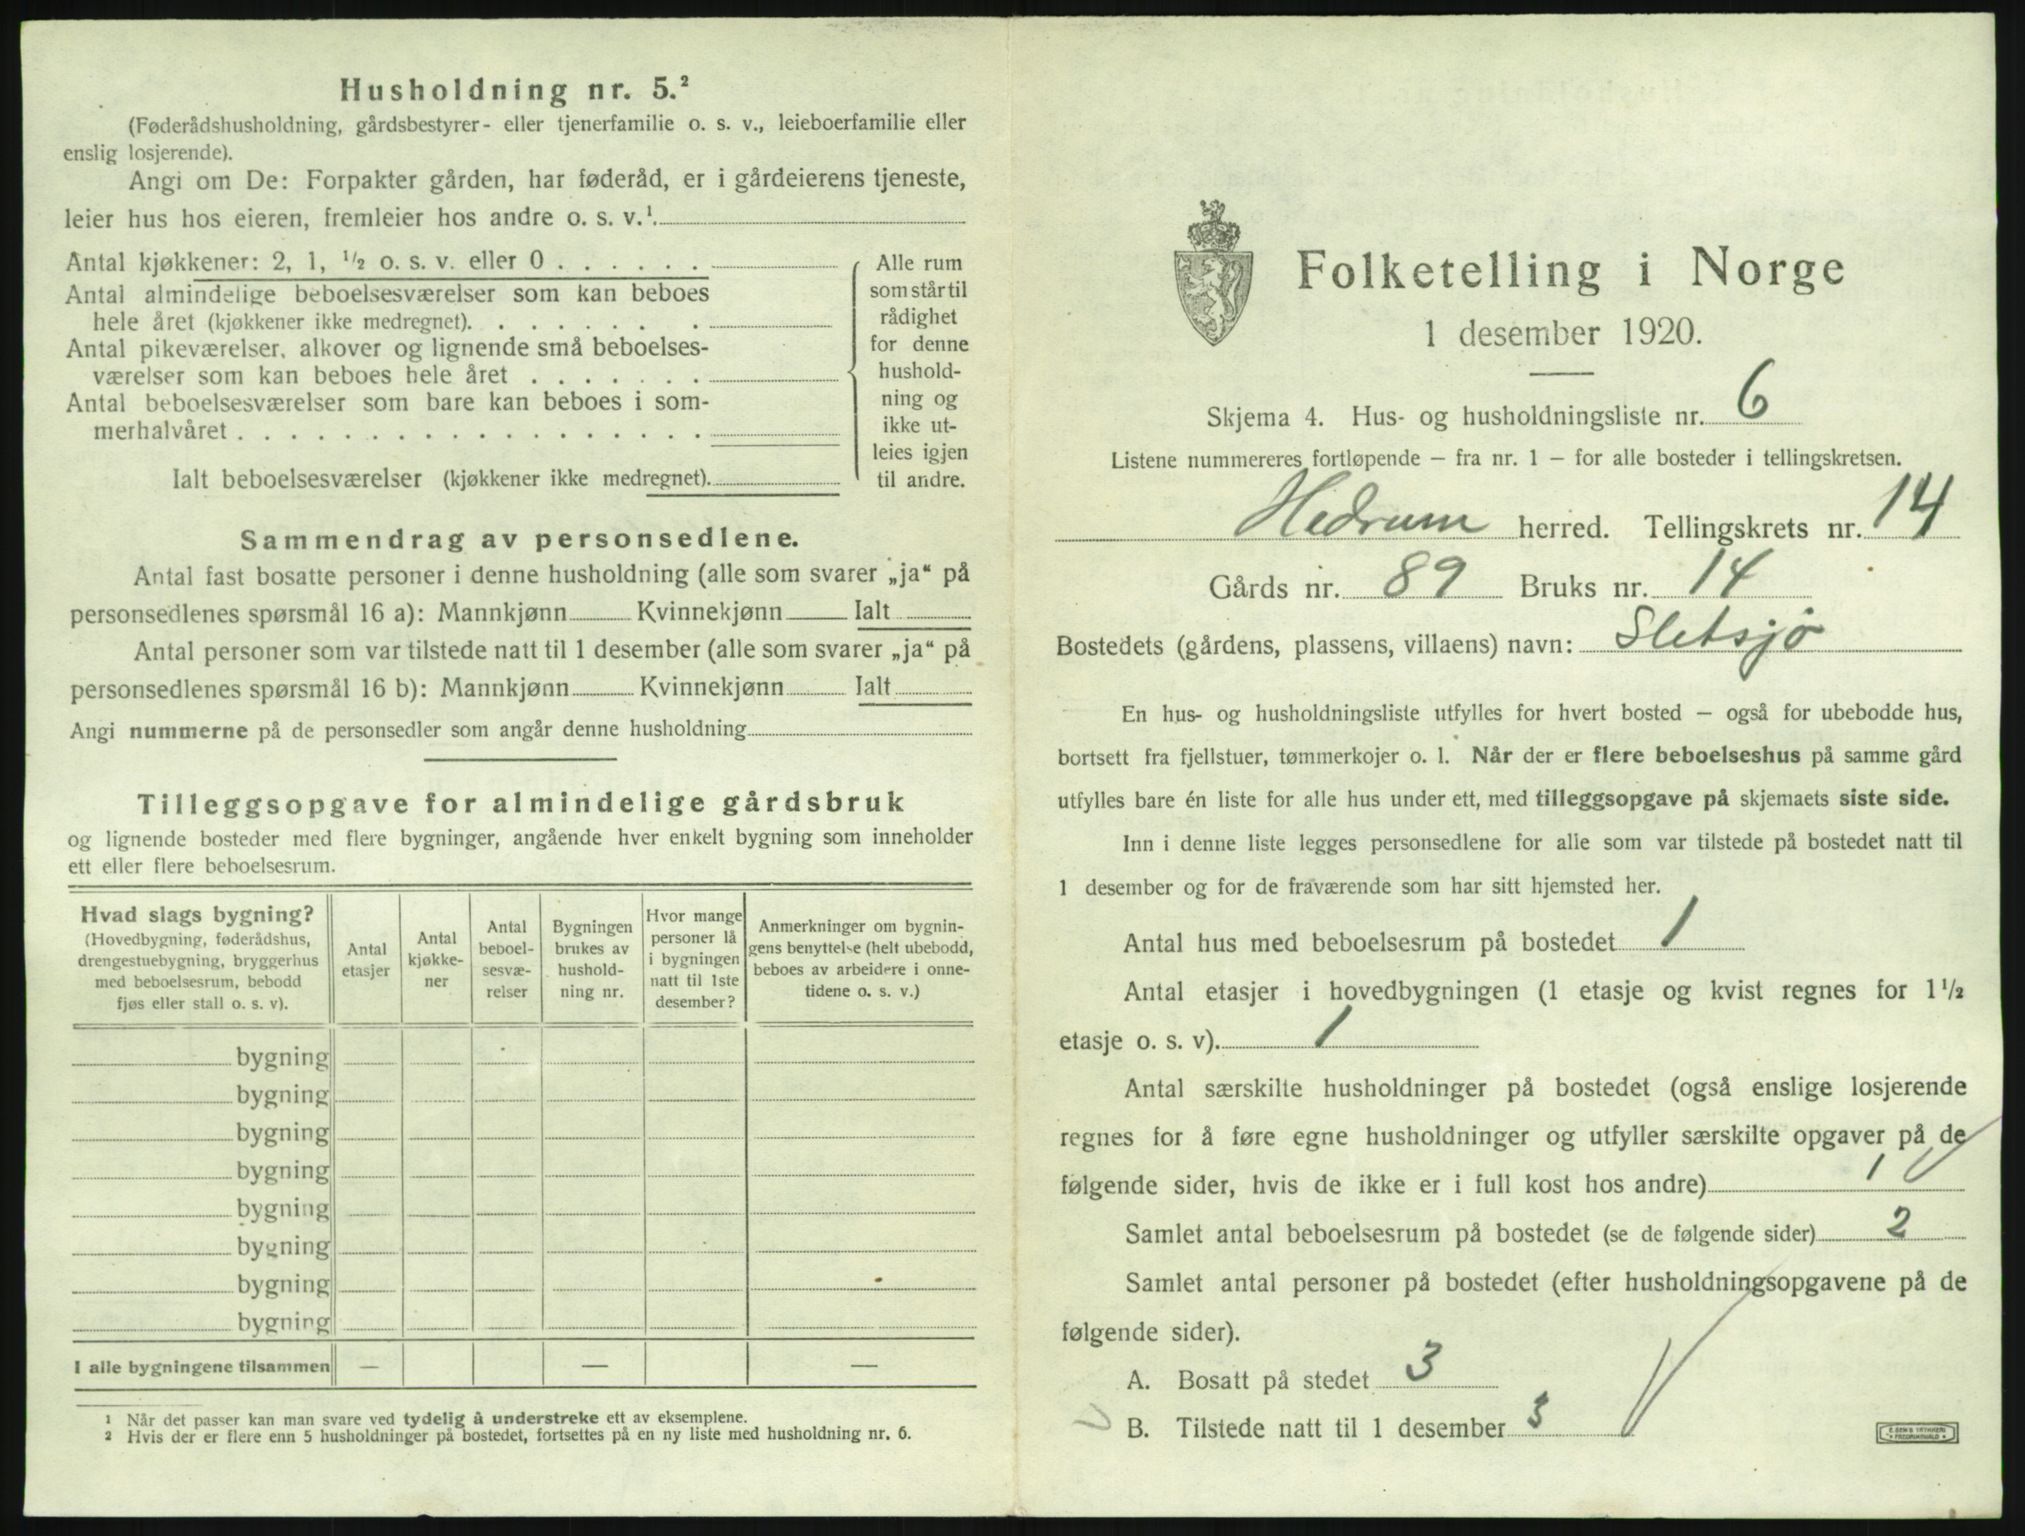 Husholdning nr. 5.²
(Føderådshusholdning, gårdsbestyrer- eller tjenerfamilie o. s. v., leieboerfamilie eller
enslig losjerende).
Angi om De: Forpakter gården, har føderåd, er i gårdeierens tjeneste,
leier hus hos eieren, fremleier hos andre o. s. v.¹
Antal kjøkkener: 2, 1, ½ o. s. v. eller 0 . . . . . .
Antal almindelige beboelsesværelser som kan beboes
hele året (kjøkkener ikke medregnet). . . . . . . . .
Antal pikeværelser, alkover og lignende små beboelses-
værelser som kan beboes hele året . . . . . . .
Antal beboelsesværelser som bare kan beboes i som-
merhalvåret . . . . . . . . . . . . . . . . . .
Ialt beboelsesværelser (kjøkkener ikke medregnet).
Alle rum
som står til
rådighet
for denne
hushold-
ning og
ikke ut-
leies igjen
til andre.
Sammendrag av personsedlene.
Antal fast bosatte personer i denne husholdning (alle som svarer „ja“ på
personsedlenes spørsmål 16 a): Mannkjønn Kvinnekjønn Ialt
Antal personer som var tilstede natt til 1 desember (alle som svarer „ja“ på
personsedlenes spørsmål 16 b): Mannkjønn Kvinnekjønn Ialt
Angi nummerne på de personsedler som angår denne husholdning
Tilleggsopgave for almindelige gårdsbruk
og lignende bosteder med flere bygninger, angående hver enkelt bygning som inneholder
ett eller flere beboelsesrum.
Hvad slags bygning?
(Hovedbygning, føderådshus,
drengestuebygning, bryggerhus
med beboelsesrum, bebodd
fjøs eller stall o. s. v).
Antal
etasjer
Antal
kjøkke-
ner
Antal
beboel-
sesvæ-
relser
Bygningen
brukes av
hushold-
ning nr.
Hvor mange
personer lå
i bygningen
natt til 1ste
desember?
Anmerkninger om bygnin-
gens benyttelse (helt ubebodd,
beboes av arbeidere i onne-
tidene o. s. v.)
bygning
bygning
bygning
bygning
bygning
bygning
bygning
bygning
I alle bygningene tilsammen — — —
1 Når det passer kan man svare ved tydelig å understreke ett av eksemplene.
2 Hvis der er flere enn 5 husholdninger på bostedet, fortsettes på en ny liste med husholdning nr. 6.
Folketelling i Norge
1 desember 1920.
Skjema 4. Hus- og husholdningsliste nr. 6
Listene nummereres fortløpende – fra nr. 1 – for alle bosteder i tellingskretsen.
Hedrum herred. Tellingskrets nr. 14
Gårds nr. 89 Bruks nr. 14
Bostedets (gårdens, plassens, villaens) navn: Sletsjø
En hus- og husholdningsliste utfylles for hvert bosted – også for ubebodde hus,
bortsett fra fjellstuer, tømmerkojer o. l. Når der er flere beboelseshus på samme gård
utfylles bare én liste for alle hus under ett, med tilleggsopgave på skjemaets siste side.
Inn i denne liste legges personsedlene for alle som var tilstede på bostedet natt til
1 desember og for de fraværende som har sitt hjemsted her.
Antal hus med beboelsesrum på bostedet 1
Antal etasjer i hovedbygningen (1 etasje og kvist regnes for 1½
etasje o. s. v). 1
Antal særskilte husholdninger på bostedet (også enslige losjerende
regnes for å føre egne husholdninger og utfyller særskilte opgaver på de
følgende sider, hvis de ikke er i full kost hos andre) 1
Samlet antal beboelsesrum på bostedet (se de følgende sider) 2
Samlet antal personer på bostedet (efter husholdningsopgavene på de
følgende sider).
A. Bosatt på stedet 3
B. Tilstede natt til 1 desember 3